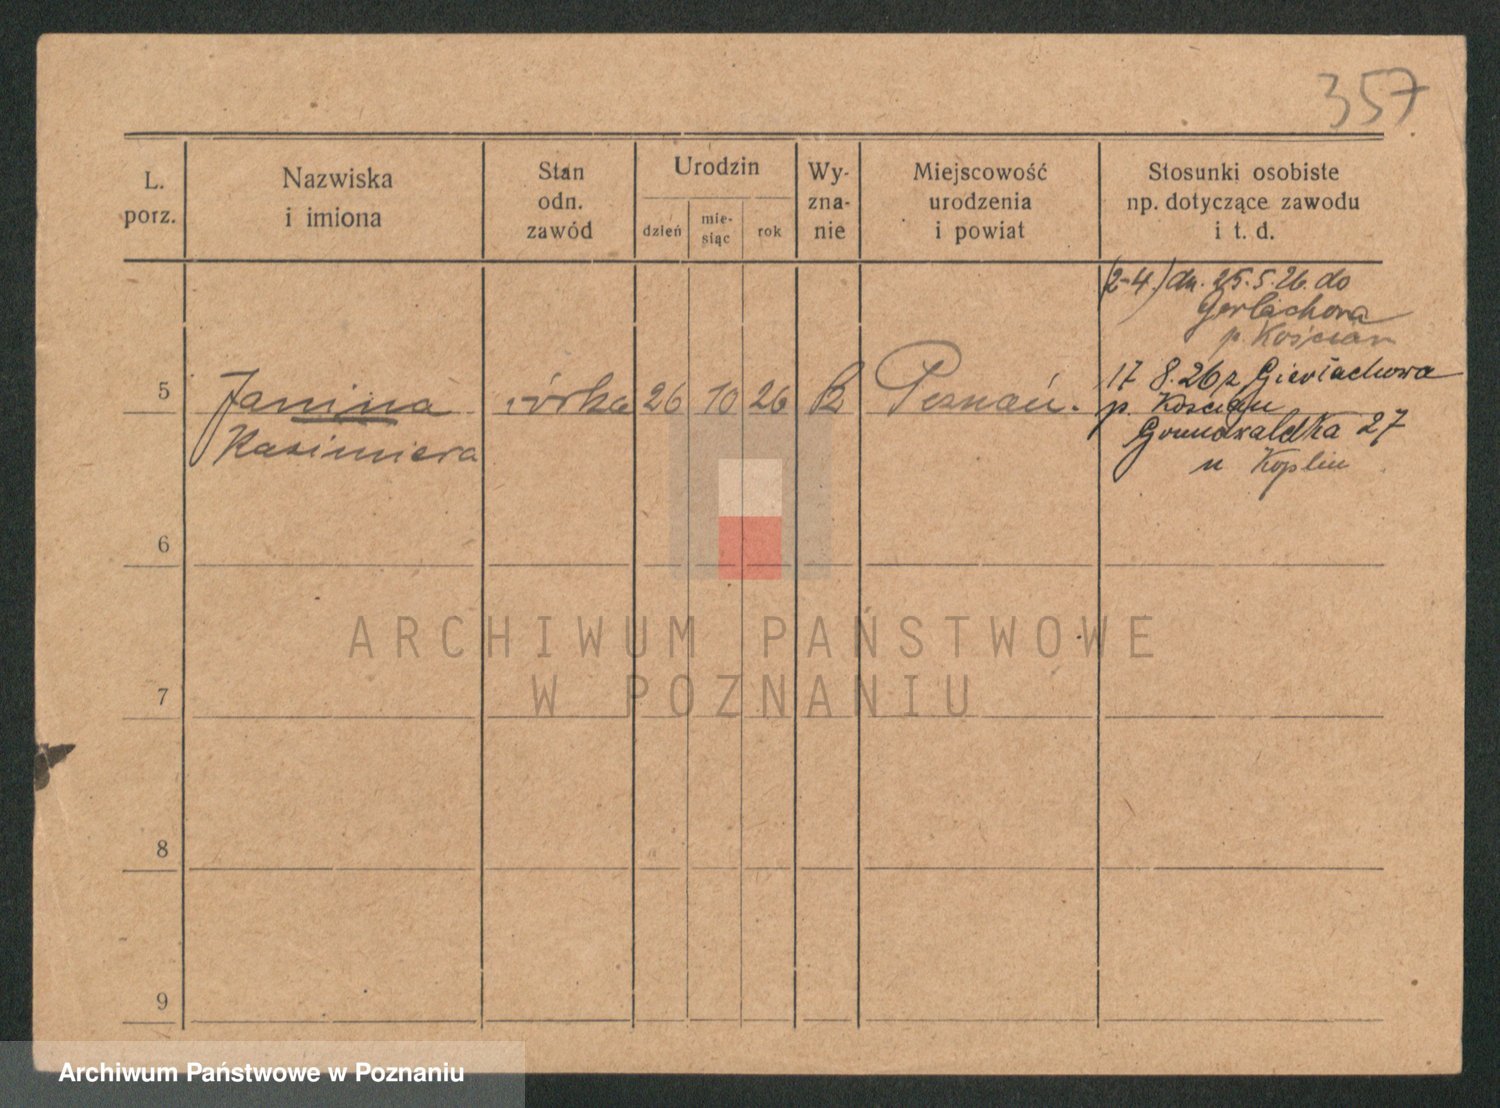 357
L.
porz.
Nazwiska
i imiona
Stan
odn.
zawód
Urodzin
dzień
mie-
siąc
rok
Wy-
zna-
nie
Miejscowość
urodzenia
i powiat
Stosunki osobiste
np. dotyczące zawodu
i t. d.
(2-4.) dn. 25.5.26. do
Gerlachowa
p. Kościan
5 Janina córka 26 10 26 Poznań.
Kazimiera
17 8.26 z
p. Kościan
Grunwaldka 27
u Koplin
6
7
8
9
ARCHIWUM PAŃSTWOWE
W POZNANIU
Archiwum Państwowe w Poznaniu